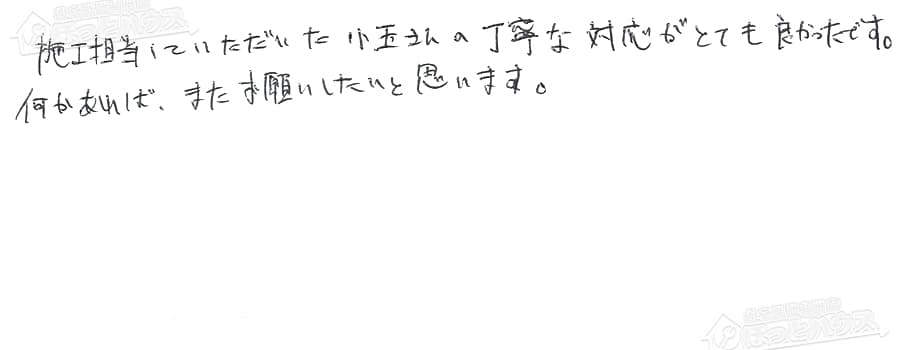 施工担当していただいた小玉さんの丁寧な対応がとても良かったです。
何かあれば、またお願いしたいと思います。